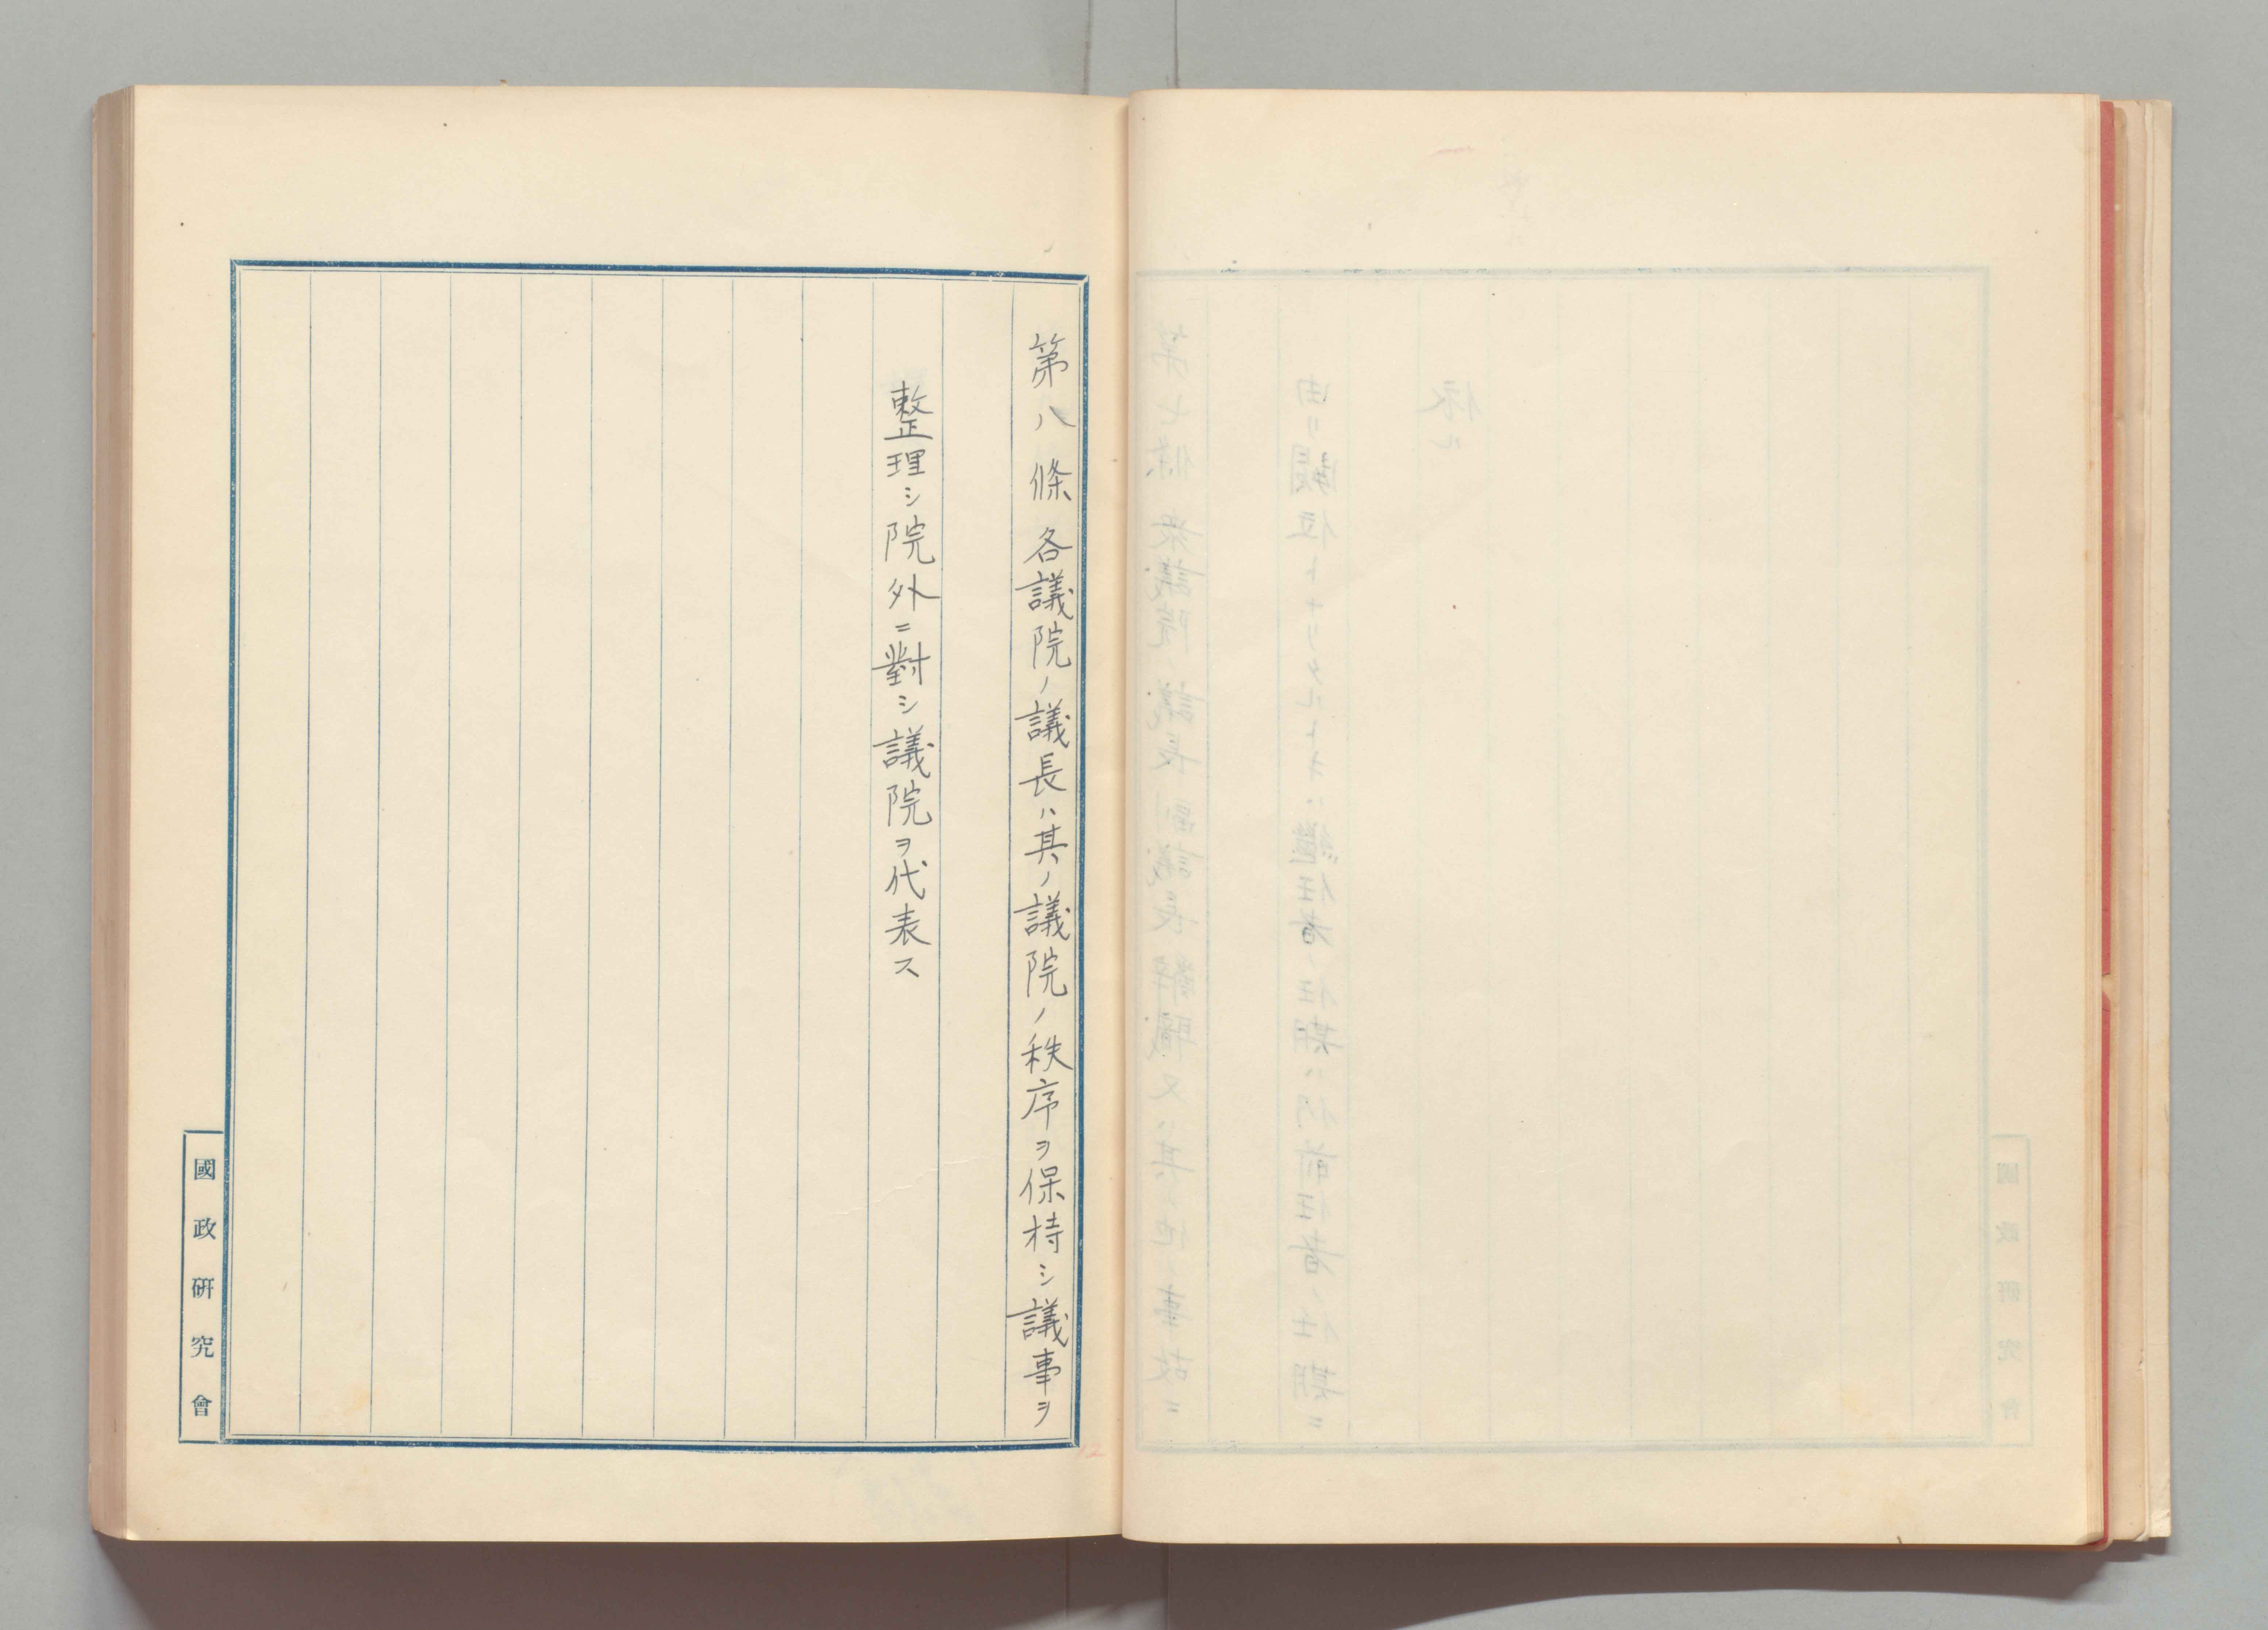 第八條 各議院ノ議長ハ其ノ議院ノ秩序ヲ保持シ議事ヲ
整理シ院外ニ對シ議院ヲ代表ス
國政研究會
12